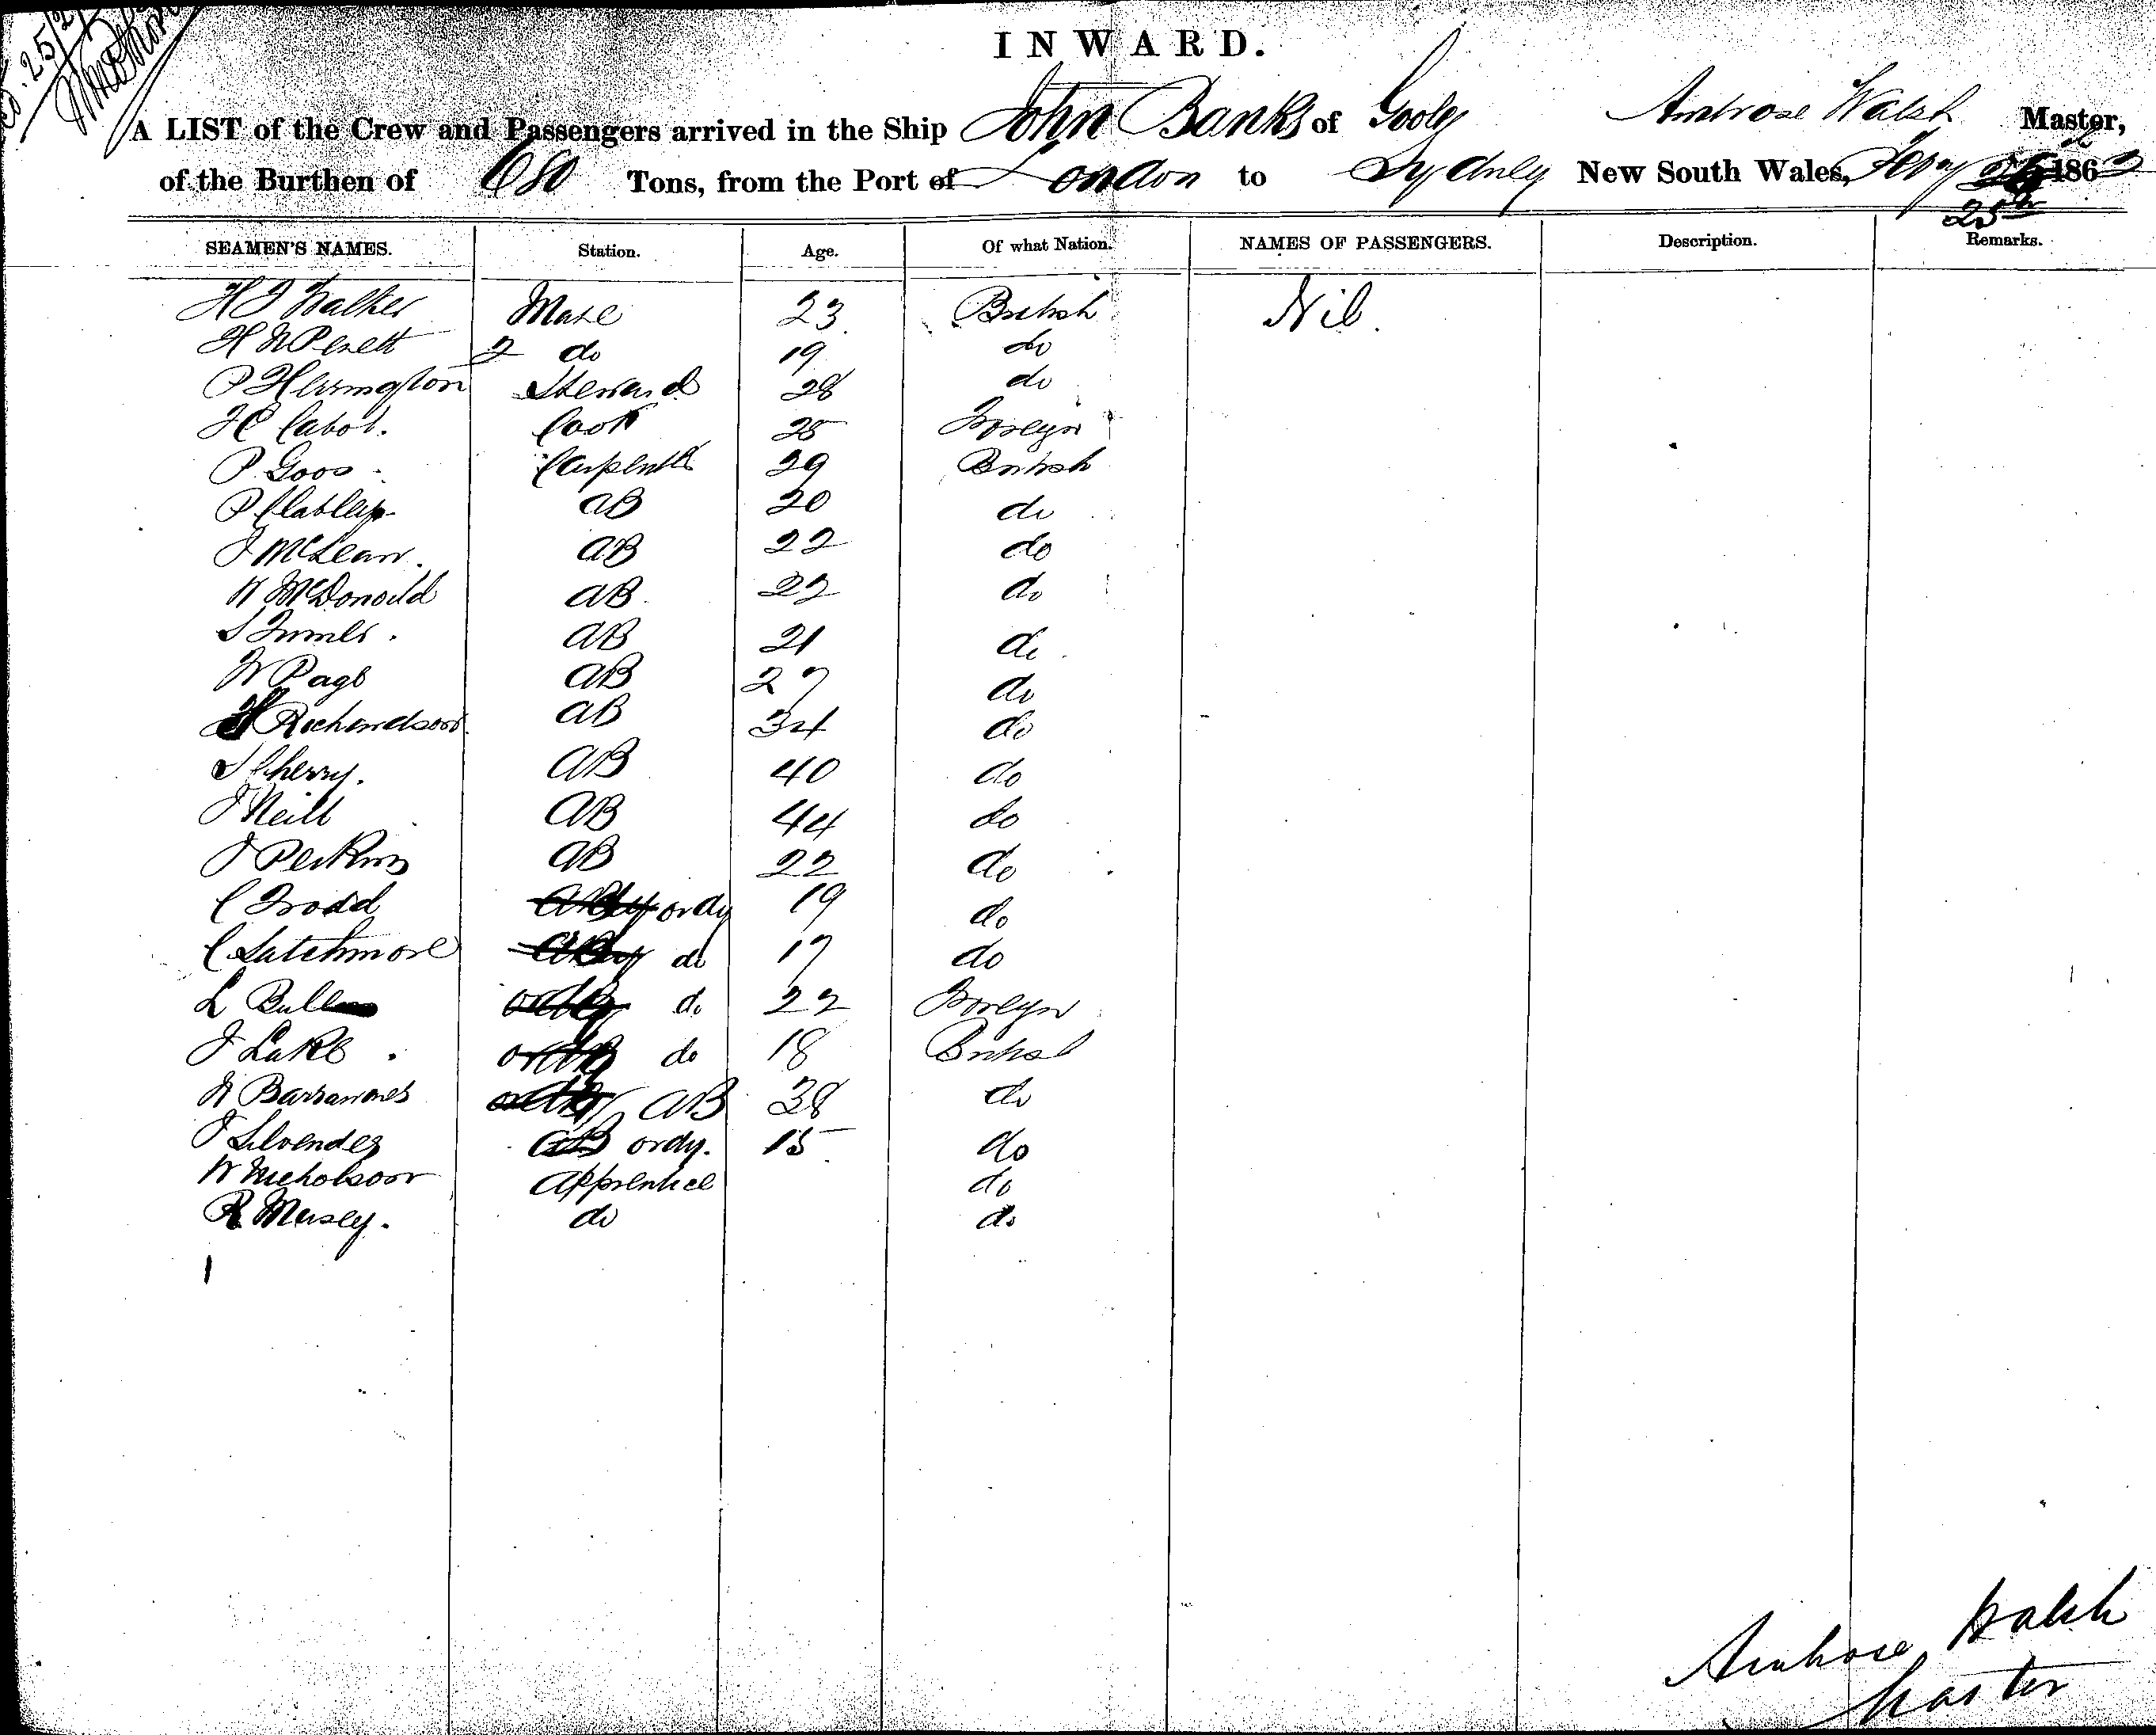 25/2
INWARD.
A LIST of the Crew and Passengers arrived in the Ship John Banks of Goole Ambrose Walsh Master,
of the Burthen of 680 Tons, from the Port of London to Sydney New South Wales, Feby 25th 1863
SEAMEN'S NAMES. Station. Age. Of what Nation. NAMES OF PASSENGERS. Description. Remarks.
H J Walker Mate 23 British Nil.
H W Perrett 2 do 19 do
P Herrington Steward 28 do
H C Cabot. Cook 25 Foreign
P Goos Carpenter 29 British
P AB 20 do
J McLean. AB 22 do
W McDonould AB 22 do
S AB 21 do
W Page AB 27 do
Richardson AB 34 do
S Cherry. AB 40 do
J Neill AB 44 do
J Perkins AB 22 do
C Frodd ordy 19 do
C Latchmore do 17 do
L Bull do 22 Foreign
J Lake. do 18 British
W AB 38 do
J ordy. 15 do
W Nicholson Apprentice do
R Mersey. do do
Ambrose Walsh
Master